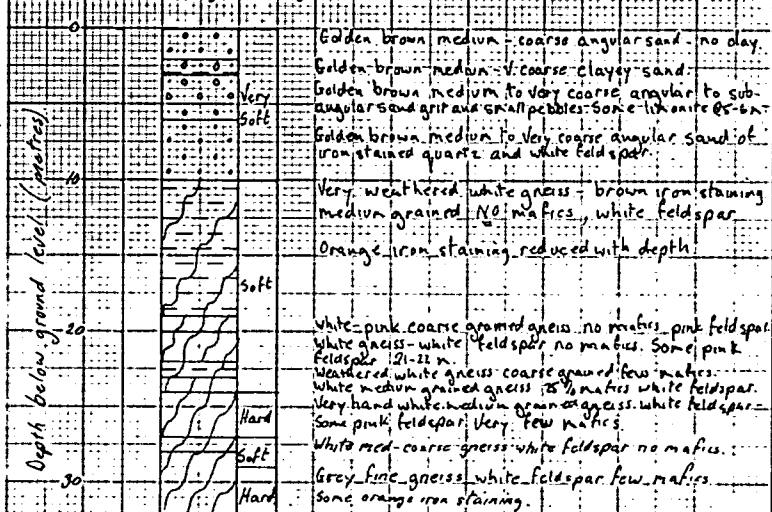 Depth below ground level (metres)
0
10
20
30
Very
Soft
Soft
Hard
Soft
Hard
Golden brown medium - coarse angular sand - no clay.
Golden brown medium - V. coarse clayey sand.
Golden brown medium to very coarse angular to sub-
angular sand grit and small pebbles. Some limonite @5-6m
Golden brown medium to very coarse angular sand of
iron stained quartz and white feldspar.
Very weathered white gneiss - brown iron staining
medium grained NO mafics, white feldspar
Orange iron staining reduced with depth
White-pink coarse grained gneiss no mafics pink feldspar
White gneiss - white feldspar no mafics. Some pink
feldspar 21-22 m.
Weathered white gneiss coarse grained few mafics.
White medium grained gneiss 25% mafics white feldspar.
Very hard white medium grained gneiss. white feldspar -
Some pink feldspar very few mafics
White med-coarse gneiss white feldspar no mafics.
Grey fine gneiss white feldspar few mafics
Some orange iron staining.